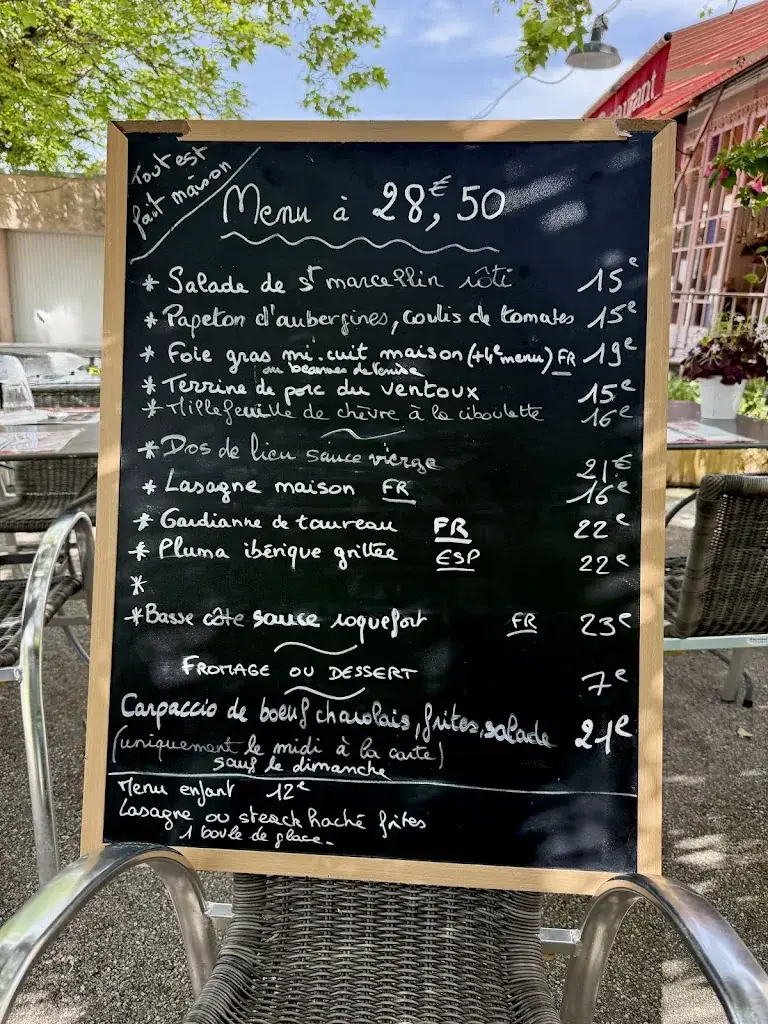 Tout est
fait maison
Menu à 28,€50
* Salade de st marcellin rôti 15€
* Papeton d'aubergines, coulis de tomates 15€
* Foie gras mi-cuit maison (+4€ menu) FR 19€
ou beaumes de venise
* Terrine de porc du ventoux 15€
* Millefeuille de chèvre à la ciboulette 16€
* Dos de lieu sauce vierge 21€
* Lasagne maison FR 16€
* Gardianne de taureau FR 22€
* Pluma ibérique grillée ESP 22€
*
* Basse côte sauce roquefort FR 23€
FROMAGE OU DESSERT 7€
Carpaccio de boeuf charolais, frites, salade 21€
(uniquement le midi à la carte)
sauf le dimanche
Menu enfant 12€
Lasagne ou steack haché frites
1 boule de glace.